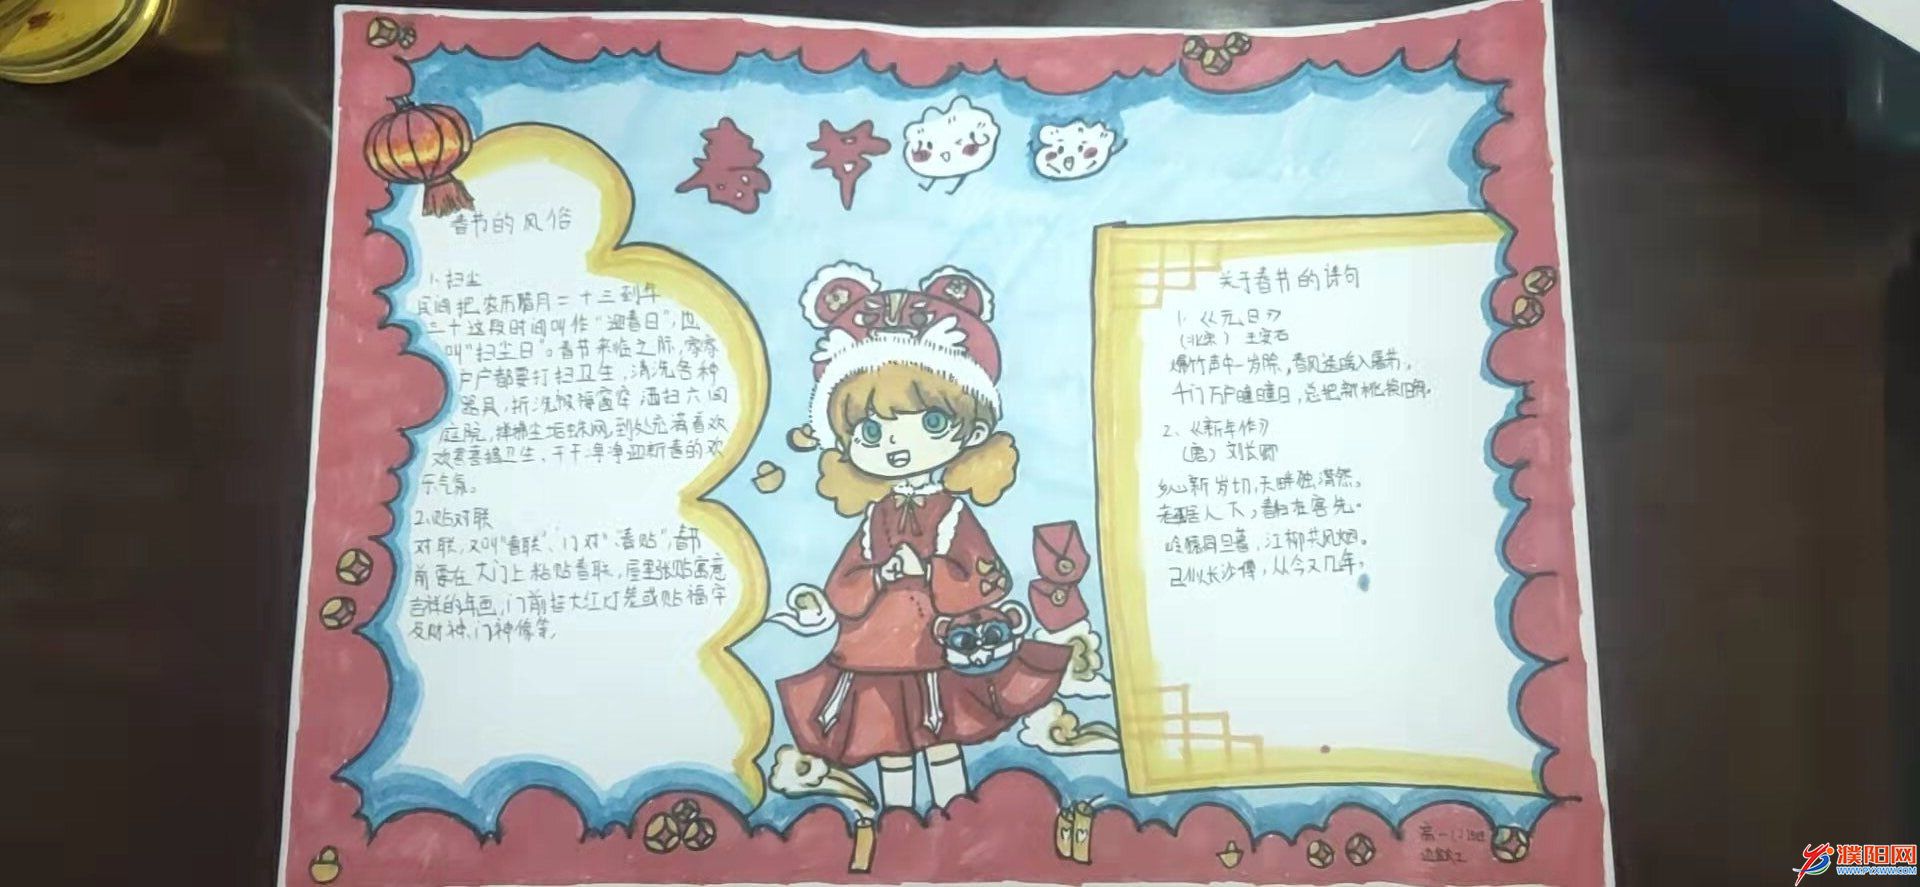 春节
春节的风俗
1. 扫尘
民间把农历腊月二十三到年
三十这段时间叫作“迎春日”，也
叫“扫尘日”。春节来临之际，家家
户户都要打扫卫生，清洗各种
器具，拆洗被褥窗帘，洒扫六闾
庭院，掸拂尘垢蛛网，到处充满着欢
欢喜喜搞卫生、干干净净迎新春的欢
乐气氛。
2. 贴对联
对联，又叫“春联”、“门对”、“春贴”，春节
前要在大门上粘贴春联，屋里张贴寓意
吉祥的年画，门前挂大红灯笼或贴福字
及财神、门神像等，
关于春节的诗句
1. 《元日》
(北宋) 王安石
爆竹声中一岁除，春风送暖入屠苏，
千门万户曈曈日，总把新桃换旧符。
2、《新年作》
(唐) 刘长卿
乡心新岁切，天畔独潸然。
老至居人下，春归在客先。
岭猿同旦暮，江柳共风烟。
已似长沙傅，从今又几年。
高一
濮阳网
WWW.PYXWW.COM